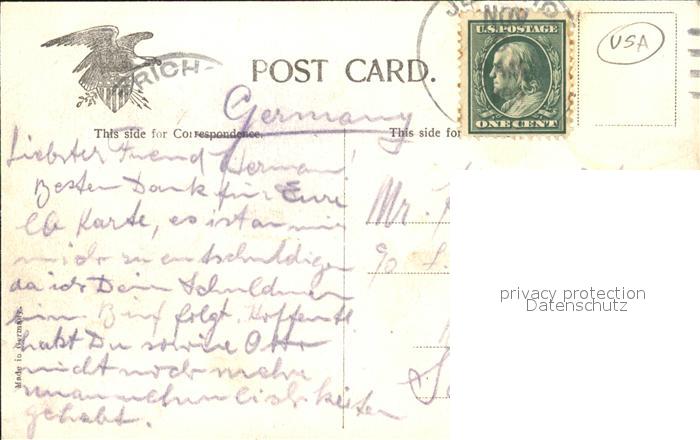 RICH
POST CARD.
NOV
U.S. POSTAGE
ONE CENT
USA
Germany
This side for Correspondence.
This side for
Liebster Freund Herman!
Besten Dank für Eure
lb Karte, es ist an mir
mich zu entschuldigen
da ich Dein Schuldner
bin. Brief folgt. Hoffentl.
habt Du sowie Otto
nicht noch mehr
unannehmlichkeiten
gehabt.
Mr.
c/o
Made in Germany.
privacy protection
Datenschutz